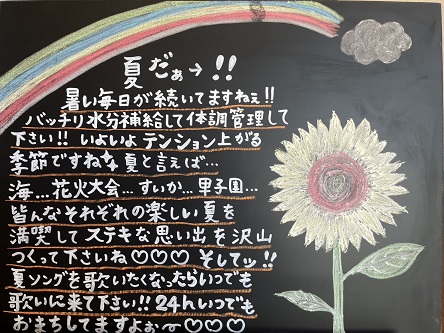 夏だぁ→!!
暑い毎日が続いてますねぇ!!
バッチリ水分補給して体調管理して
下さい!! いよいよテンション上がる
季節ですねな 夏と言えば…
海…花火大会…すいか…甲子園…
皆んなそれぞれの楽しい夏を
満喫してステキな思い出を沢山
つくって下さいね♡♡♡ そしてッ!!
夏ソングを歌いたくなったらいつでも
歌いに来て下さい!! 24hいつでも
おまちしてますよぉ〜♡♡♡